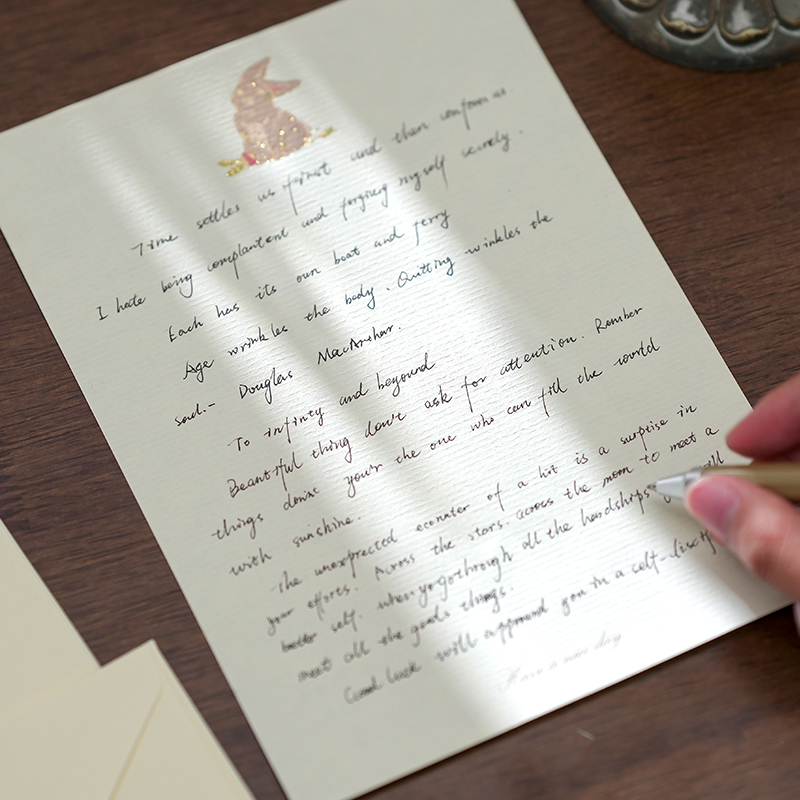 Time settles us first and then confuses us.
I hate being complantent and forgiving myself securely.
Each has its own boat and ferry
Age wrinkles the body. Quitting wrinkles the
soul.— Douglas MacArthar.
To infinty and beyound
Beautiful thing don't ask for attention. Rember
things done you're the one who can fill the world
with sunshine.
The unexprected econter of a hit is a surprise in
your efforts. Across the stars. across the moon to meet a
better self. when yo gothrough all the handships
meet all the goods things.
Good luck will appround you in a self-discip
Have a nice day